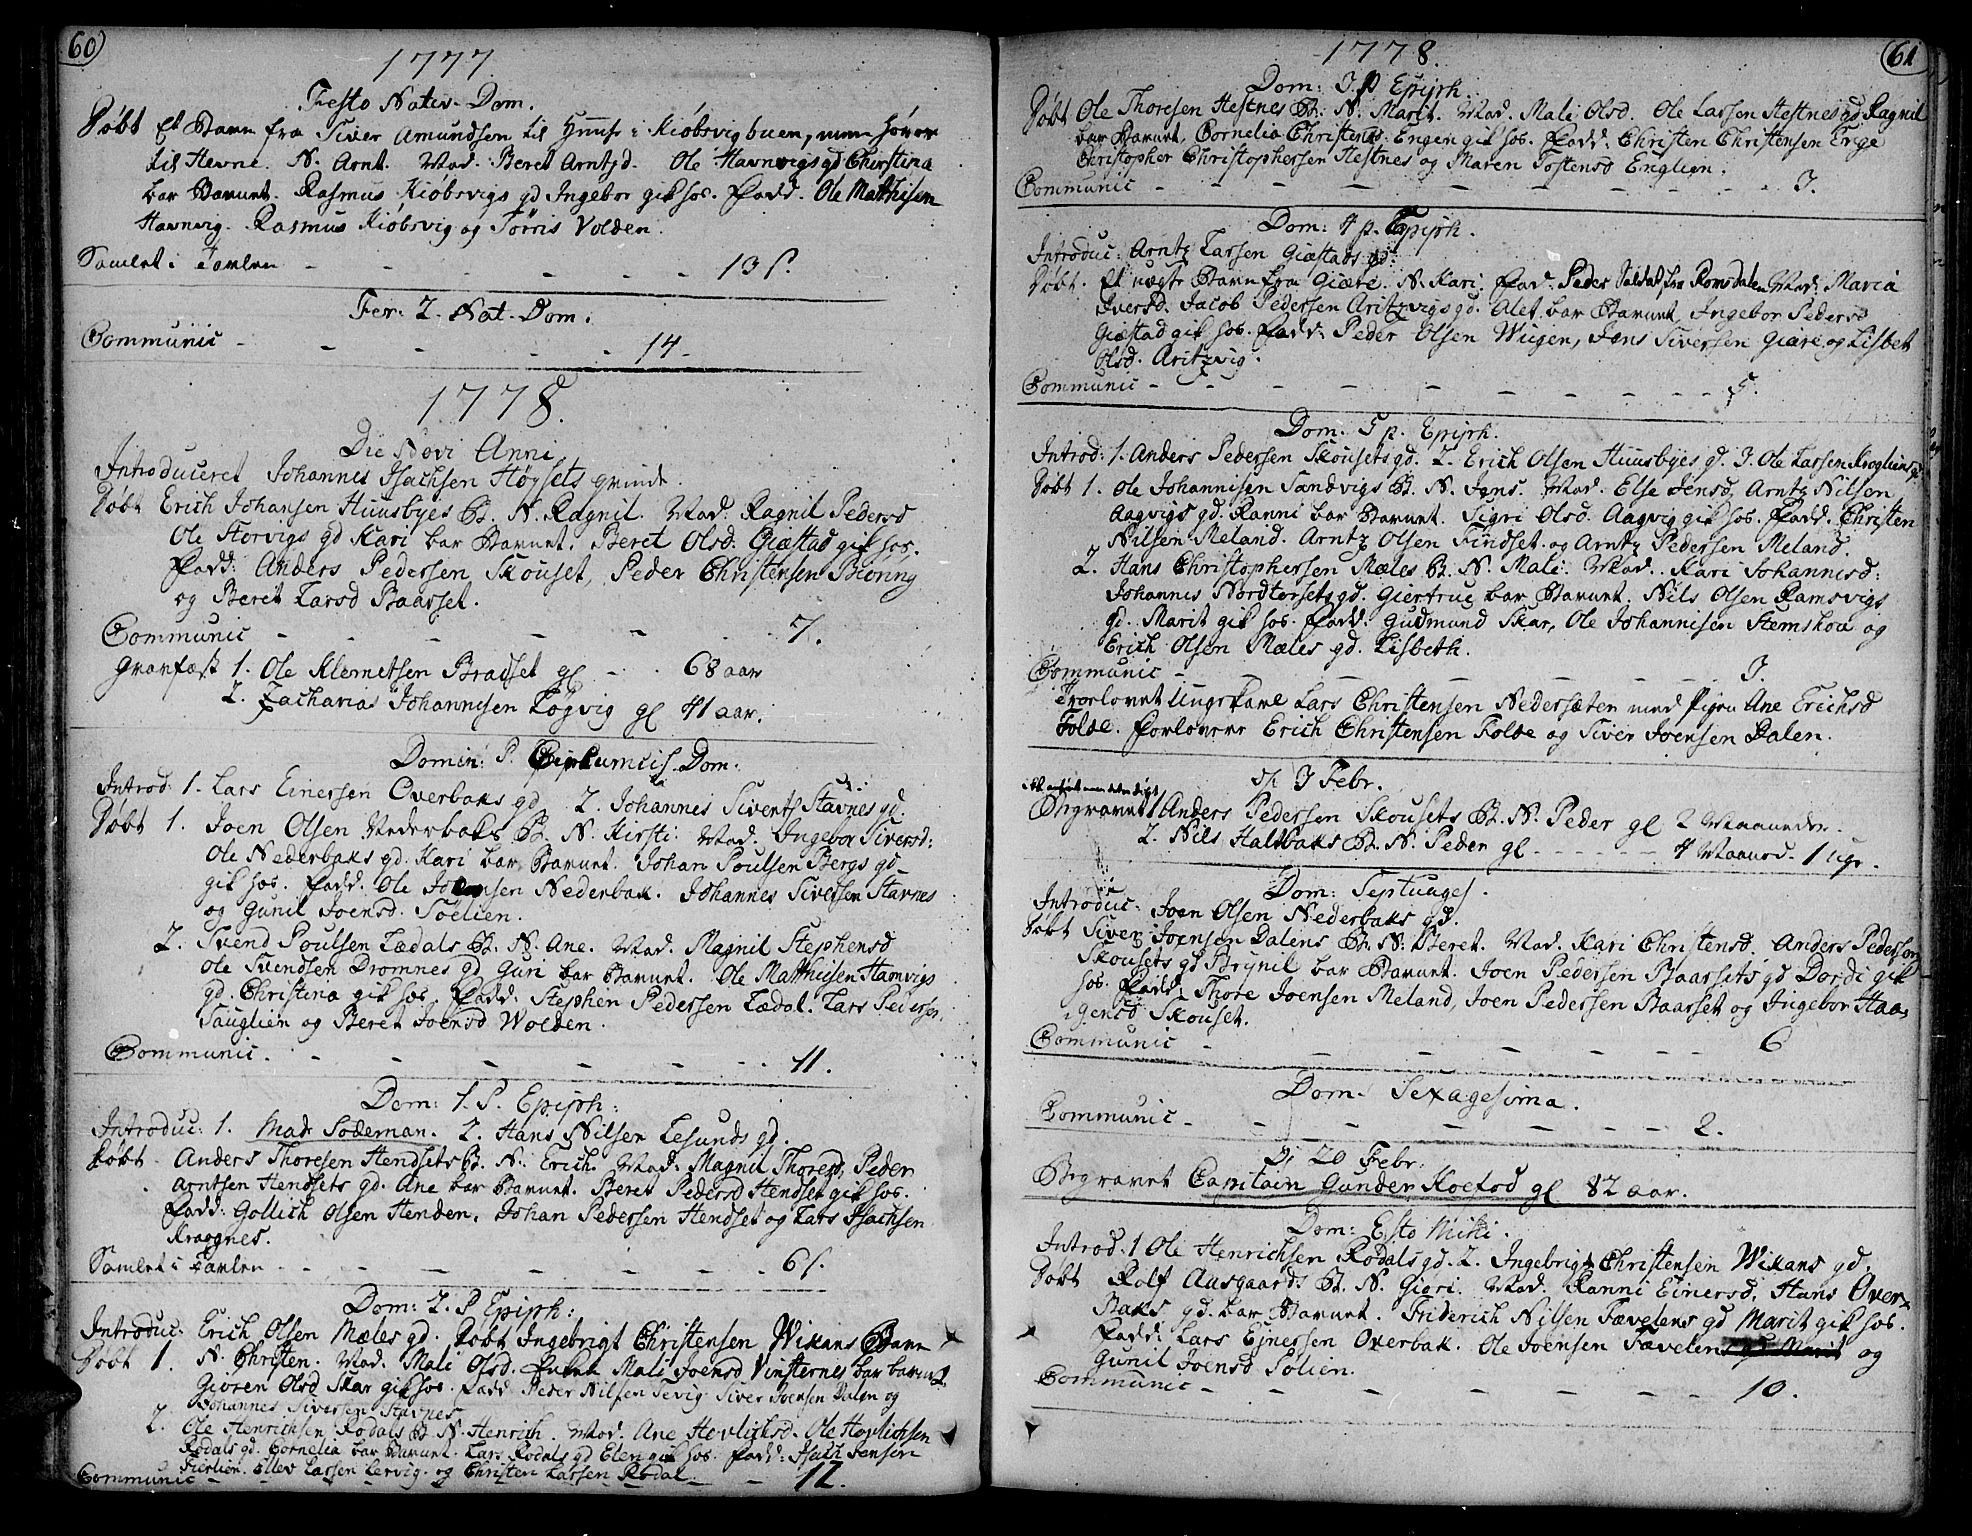 60
1777.
Festo Nativ. Dom.
Døbt Et Barn fra Siver Amundsen til Huuse i Kiøbsvigbuen, men hører
til Hevne. N. Arnt. Mad. Beret Arntzd. Ole Havnvigs gd Christina
bar Barnet. Rasmus Kiøbsvigs gd Ingebor gik hos. Fadd. Ole Matthisen
Havnvig. Rasmus Kiøbsvig og Tørris Volden.
Samlet i Tavlen - - - - - 13 s.
Fer: 2. Nat. Dom.
Communic - - - - - 14.
1778.
Die Novi Anni
Introduceret Johannes Isachsen Høgsets qvinde.
Døbt Erich Johansen Huusbyes B. N. Ragnil. Mad. Ragnil Pedersd
Ole Storvigs gd Kari bar Barnet. Beret Olsd. Giæstad gik hos.
Fadd: Anders Pedersen Skouset, Peder Christensen Biering
og Beret Larsd Baarset.
Communic - - - - - 7.
Gravfæst 1. Ole Klemetsen Bradset gl - - 68 aar
2. Zacharias Johannisen Løgvig gl 41 aar.
Domin: P. Dom.
Introd: 1. Lars Einersen Overbaks gd 2. Johannes Sivertz Stavnes gd.
Døbt 1. Joen Olsen Nederbaks B. N. Kirsti Mad. Ingebor Siversd:
Ole Nederbaks gd. Kari bar Barnet. Johan Poulsen Bergs gd
gik hos. Fadd. Ole Nederbak. Johannes Siversen Stavnes
og Gunil Joensd. Søelien.
2. Svend Poulsen Lædals B. N. Ane. Mad. Magnil Stephensd
Ole Svendsen Dromnes gd Guri bar Barnet. Ole Matthisen Hamvigs
gd. Christina gik hos. Fadd: Stephen Pedersen Lædal. Lars Pedersen
Sauglien og Beret Joensd Wolden.
Communic. - - - - - 11.
Dom: 1. P. Epiph:
Introduc: 1. Mad: Sodeman. 2. Hans Nilsen Lesunds gd.
Døbt. Anders Thoresen Hendsets B. N. Erich. Mad: Magnil Thoresd. Peder
Arntsen Hendsets gd. Ane bar Barnet. Beret Pedersd Hendset gik hos.
Fadd: Gollich Olsen Henden. Johan Pedersen Hendset og Lars Isachsen
Kraagnes.
Samlet i Tavlen - - - - - 6 s.
Dom: 2. P Epiph:
Introduc: Erich Olsen Mæles gd. Døbt Ingebrigt Christensen Wikans Barn
Døbt 1. N. Christen. Mad. Mali Olsd. Mali Joensd Vinsternes bar barnet.
Gioren Olsd Skar gik hos. Fadd Peder Nilsen Sevig. Siver Joensen Dalen og
Johannes Siversen Stavnes
2. Ole Henrichsen Rodals B. N. Henrich. Mad. Ane Hevlichsd. Ole Hevlichsen
Rodals gd. Cornelia bar Barnet. Lars Rodals gd Elen gik hos. Fadd: Isach Jensen
Fierlien. Ellev Larsen Lervig. og Christen Larsen Rodal.
Communic - - - - - 12.
61
1778.
Dom: 3. p Epiph.
Døbt Ole Thoresen Hestnes B. N. Marit. Mad. Mali Olsd. Ole Larsen Hestnes gd Ragnil
bar Barnet, Cornelia Christensd Engen gik hos. Fadd: Christen Christensen Enge
Christopher Christophersen Hestnes og Maren Tostensd Englien.
Communic - - - - - 3.
Dom: 4 p. Epiph.
Introduc: Arntz Larsen Giæstads gd.
Døbt. Et uægte Barn fra Giære. N. Kari. Fad: Peder Saltdal, fra Romsdalen Mad: Maria
Iversd. Jacob Pedersen Aritzvigs gd. Alet bar Barnet, Ingebor Pedersd
Giæstad gik hos. Fadd: Peder Olsen Wiigen, Jens Siversen Giære og Lisbet
Olsd. Aritzvig.
Communic - - - - - 5.
Dom. 5 p. Epiph.
Introd: 1. Anders Pedersen Skousets gd. 2. Erich Olsen Huusbyes gd. 3. Ole Larsen Krogliens gd.
Døbt 1. Ole Johannisen Sandvigs B. N. Jens. Mad. Else Jensd, Arntz Nilsen
Aagvigs gd. Ranni bar Barnet. Sigri Olsd. Aagvig gik hos. Fadd. Christen
Nilsen Meland. Arntz Olsen Findset. og Arntz Pedersen Meland.
2. Hans Christophersen Mæles B. N. Mali. Mad. Kari Johannisd:
Johannis Nordtorsets gd. Giertrug bar Barnet. Nils Olsen Ramsvigs
gd. Marit gik hos. Fadd: Gudmund Skar, Ole Johannisen Stemshou og
Erich Olsen Mæles gd. Lisbeth.
Communic - - - - - 3.
Trorlovet Ungskarl Lars Christensen Nedersæten med Pigen Ane Erichsd
Folde. Forlovere Erich Christensen Folde og Siver Joensen Dalen.
d. 3 Febr.
Begravet 1 Anders Pedersen Skousets B. N. Peder gl 2 Maaneder.
2. Nils Haltbaks B. N. Peder gl - - - - - 4 Maaned. 1 uge.
Dom: Septuages.
Introduc: Joen Olsen Nederbaks gd.
Døbt Siver Joensen Dalens B. N. Beret. Mad. Kari Christensd. Anders Pedersen
Skousets gd Brynil bar Barnet. Joen Pedersen Baarsets gd Dordi gik
hos. Fadd: Thore Joensen Meland, Joen Pedersen Baarset og Ingebor Haa-
gensd Skouset.
Communic - - - - - 6
Dom. Sexagesima.
Communic - - - - - 2.
D. 20 Febr.
Begravet Capitain Gunder Koefod gl 82 aar.
Dom: Esto Mihi.
Introd. 1 Ole Henrichsen Rodals gd. 2. Ingebrigt Christensen Wikans gd.
Døbt Rolf Ausgaards B. N. Giøri. Mad. Ranni Einersd, Hans Over-
Baks gd. bar Barnet. Friderich Nilsen Fævelens gd Marit gik hos.
Fadd: Lars Ejnersen Overbak. Ole Joensen Fævelen og
Gunil Joensd Solien.
Communic - - - - - 10.